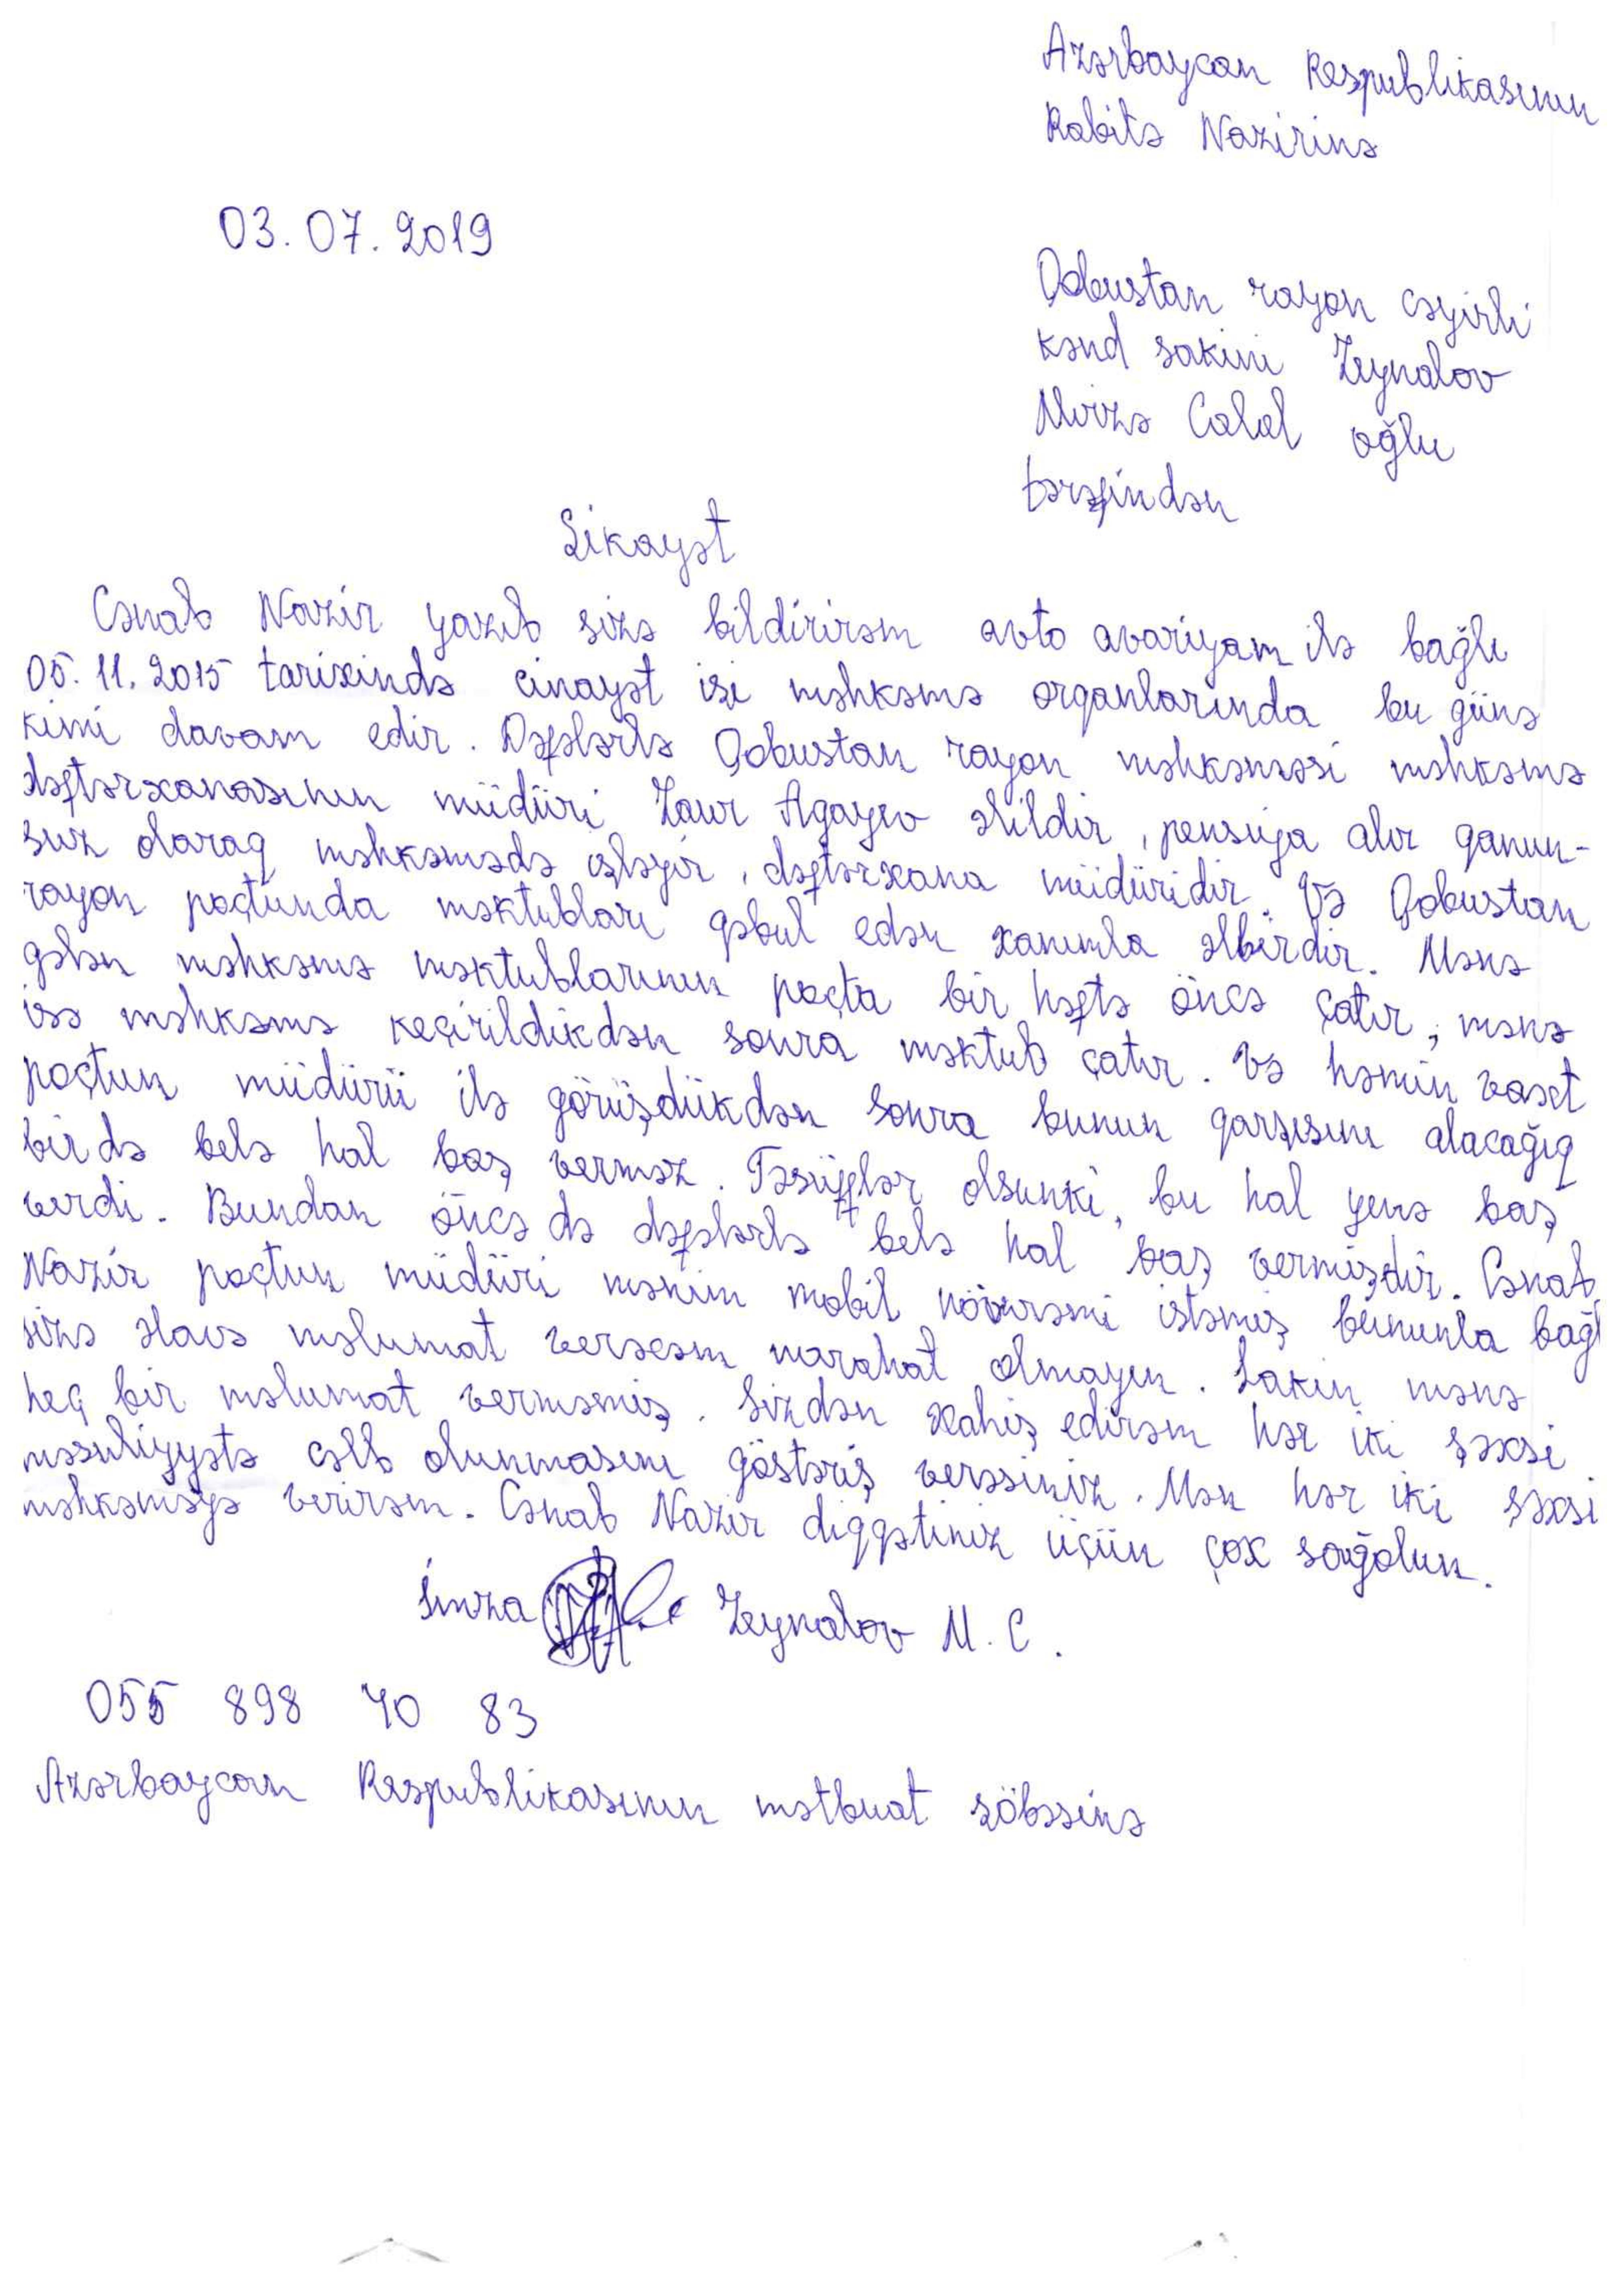 Azərbaycan Respublikasının
Rabitə Nazirinə
03.07.2019
Qobustan rayon Cəyirli
kənd sakini Zeynalov
Mirzə Calal oğlu
tərəfindən
Şikayət
Cənab Nazir yazıb sizə bildirirəm avto avariyam ilə bağlı
05.11.2015 tarixində cinayət işi məhkəmə orqanlarında bu günə
kimi davam edir. Dəfələrlə Qobustan rayon məhkəməsi məhkəmə
dəftərxanasının müdüri Zaur Agayev əlildir, pensiya alır qanun-
suz olaraq məhkəmədə işləyir, dəftərxana müdüridir. Və Qobustan
rayon poçtunda məktubları qəbul edən xanımla əlbirdir. Mənə
gələn məhkəmə məktublarının poçta bir həftə öncə çatır, mənə
isə məhkəmə keçirildikdən sonra məktub çatır. Və həmin vaxt
poçtun müdürü ilə görüşdükdən sonra bunun qarşısını alacağıq
birdə belə hal baş verməz. Təsüflər olsunki, bu hal yenə baş
verdi. Bundan öncə də dəfələrlə belə hal baş vermişdir. Cənab
Nazir poçtun müdüri mənim mobil nömrəmi istəmiş bununla bağl
sizə əlavə məlumat verəcəm narahat olmayın. Lakin mənə
heç bir məlumat verməmiş. Sizdən xahiş edirəm hər iki şəxsi
məsuliyyətə cəlb olunmasını göstəriş verəsiniz. Mən hər iki şəxsi
məhkəməyə verirəm. Cənab Nazir diqqətiniz üçün çox sağolun.
İmza Zeynalov M. C.
055 898 70 83
Azərbaycan Respublikasının mətbuat şöbəsinə